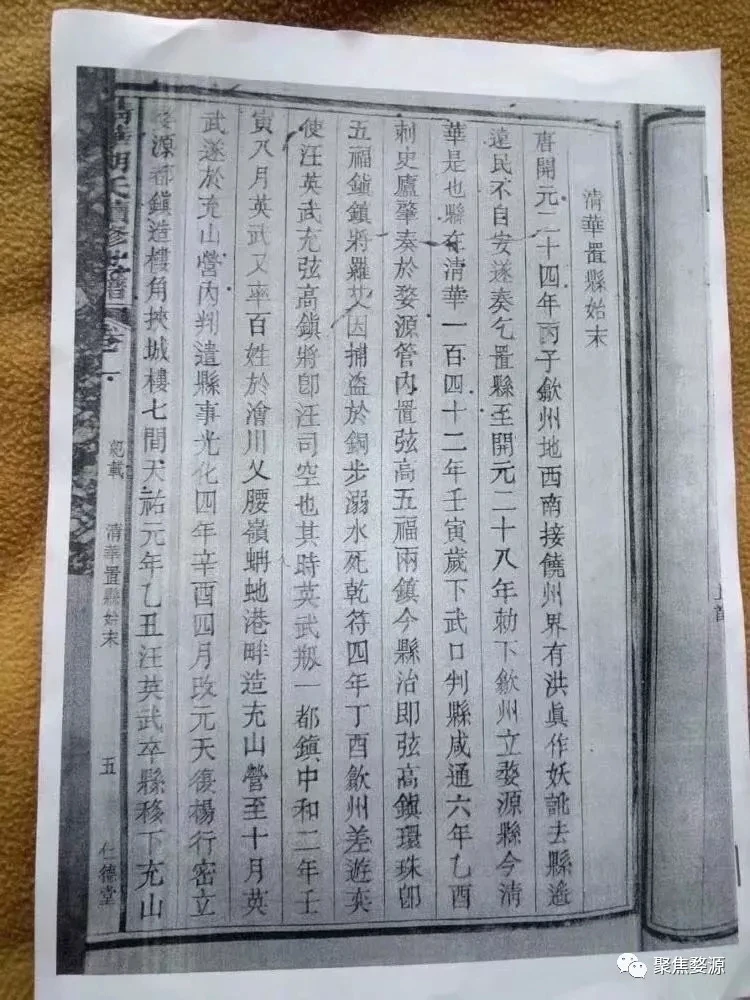 清華置縣始末
唐開元二十四年丙子歙州地西南接饒州界有洪眞作妖訛去縣遙
遠民不自安遂奏乞置縣至開元二十八年勅下歙州立婺源縣今清
華是也縣在清華一百四十二年壬寅歲下武口判縣咸通六年乙酉
刺史廬肇奏於婺源管內置弦高五福兩鎮今縣治即弦高鎮環珠卽
五福鎮鎮將羅艾因捕盜於銅步溺水死乾符四年丁酉歙州差遊奕
使汪英武充弦高鎮將卽汪司空也其時英武瓶一都鎮中和二年壬
寅八月英武又率百姓於澮川乂腰嶺蚺虵港畔造充山營至十月英
武遂於充山營內判遣縣事光化四年辛酉四月改元天復楊行密立
源都鎮造樓角挾城樓七間天祐元年乙丑汪英武卒縣移下充山
清華胡氏續修世譜 卷之
紀載 清華置縣始末 五 仁德堂
聚焦婺源